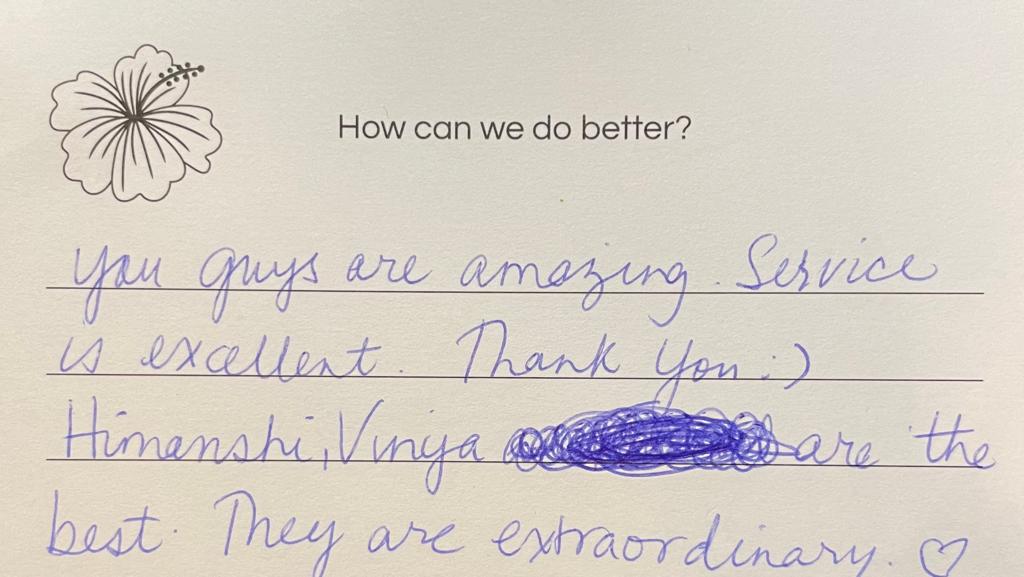 How can we do better?
You guys are amazing. Service
is excellent. Thank you :)
Himanshi, Vinya are the
best. They are extraordinary. ♡